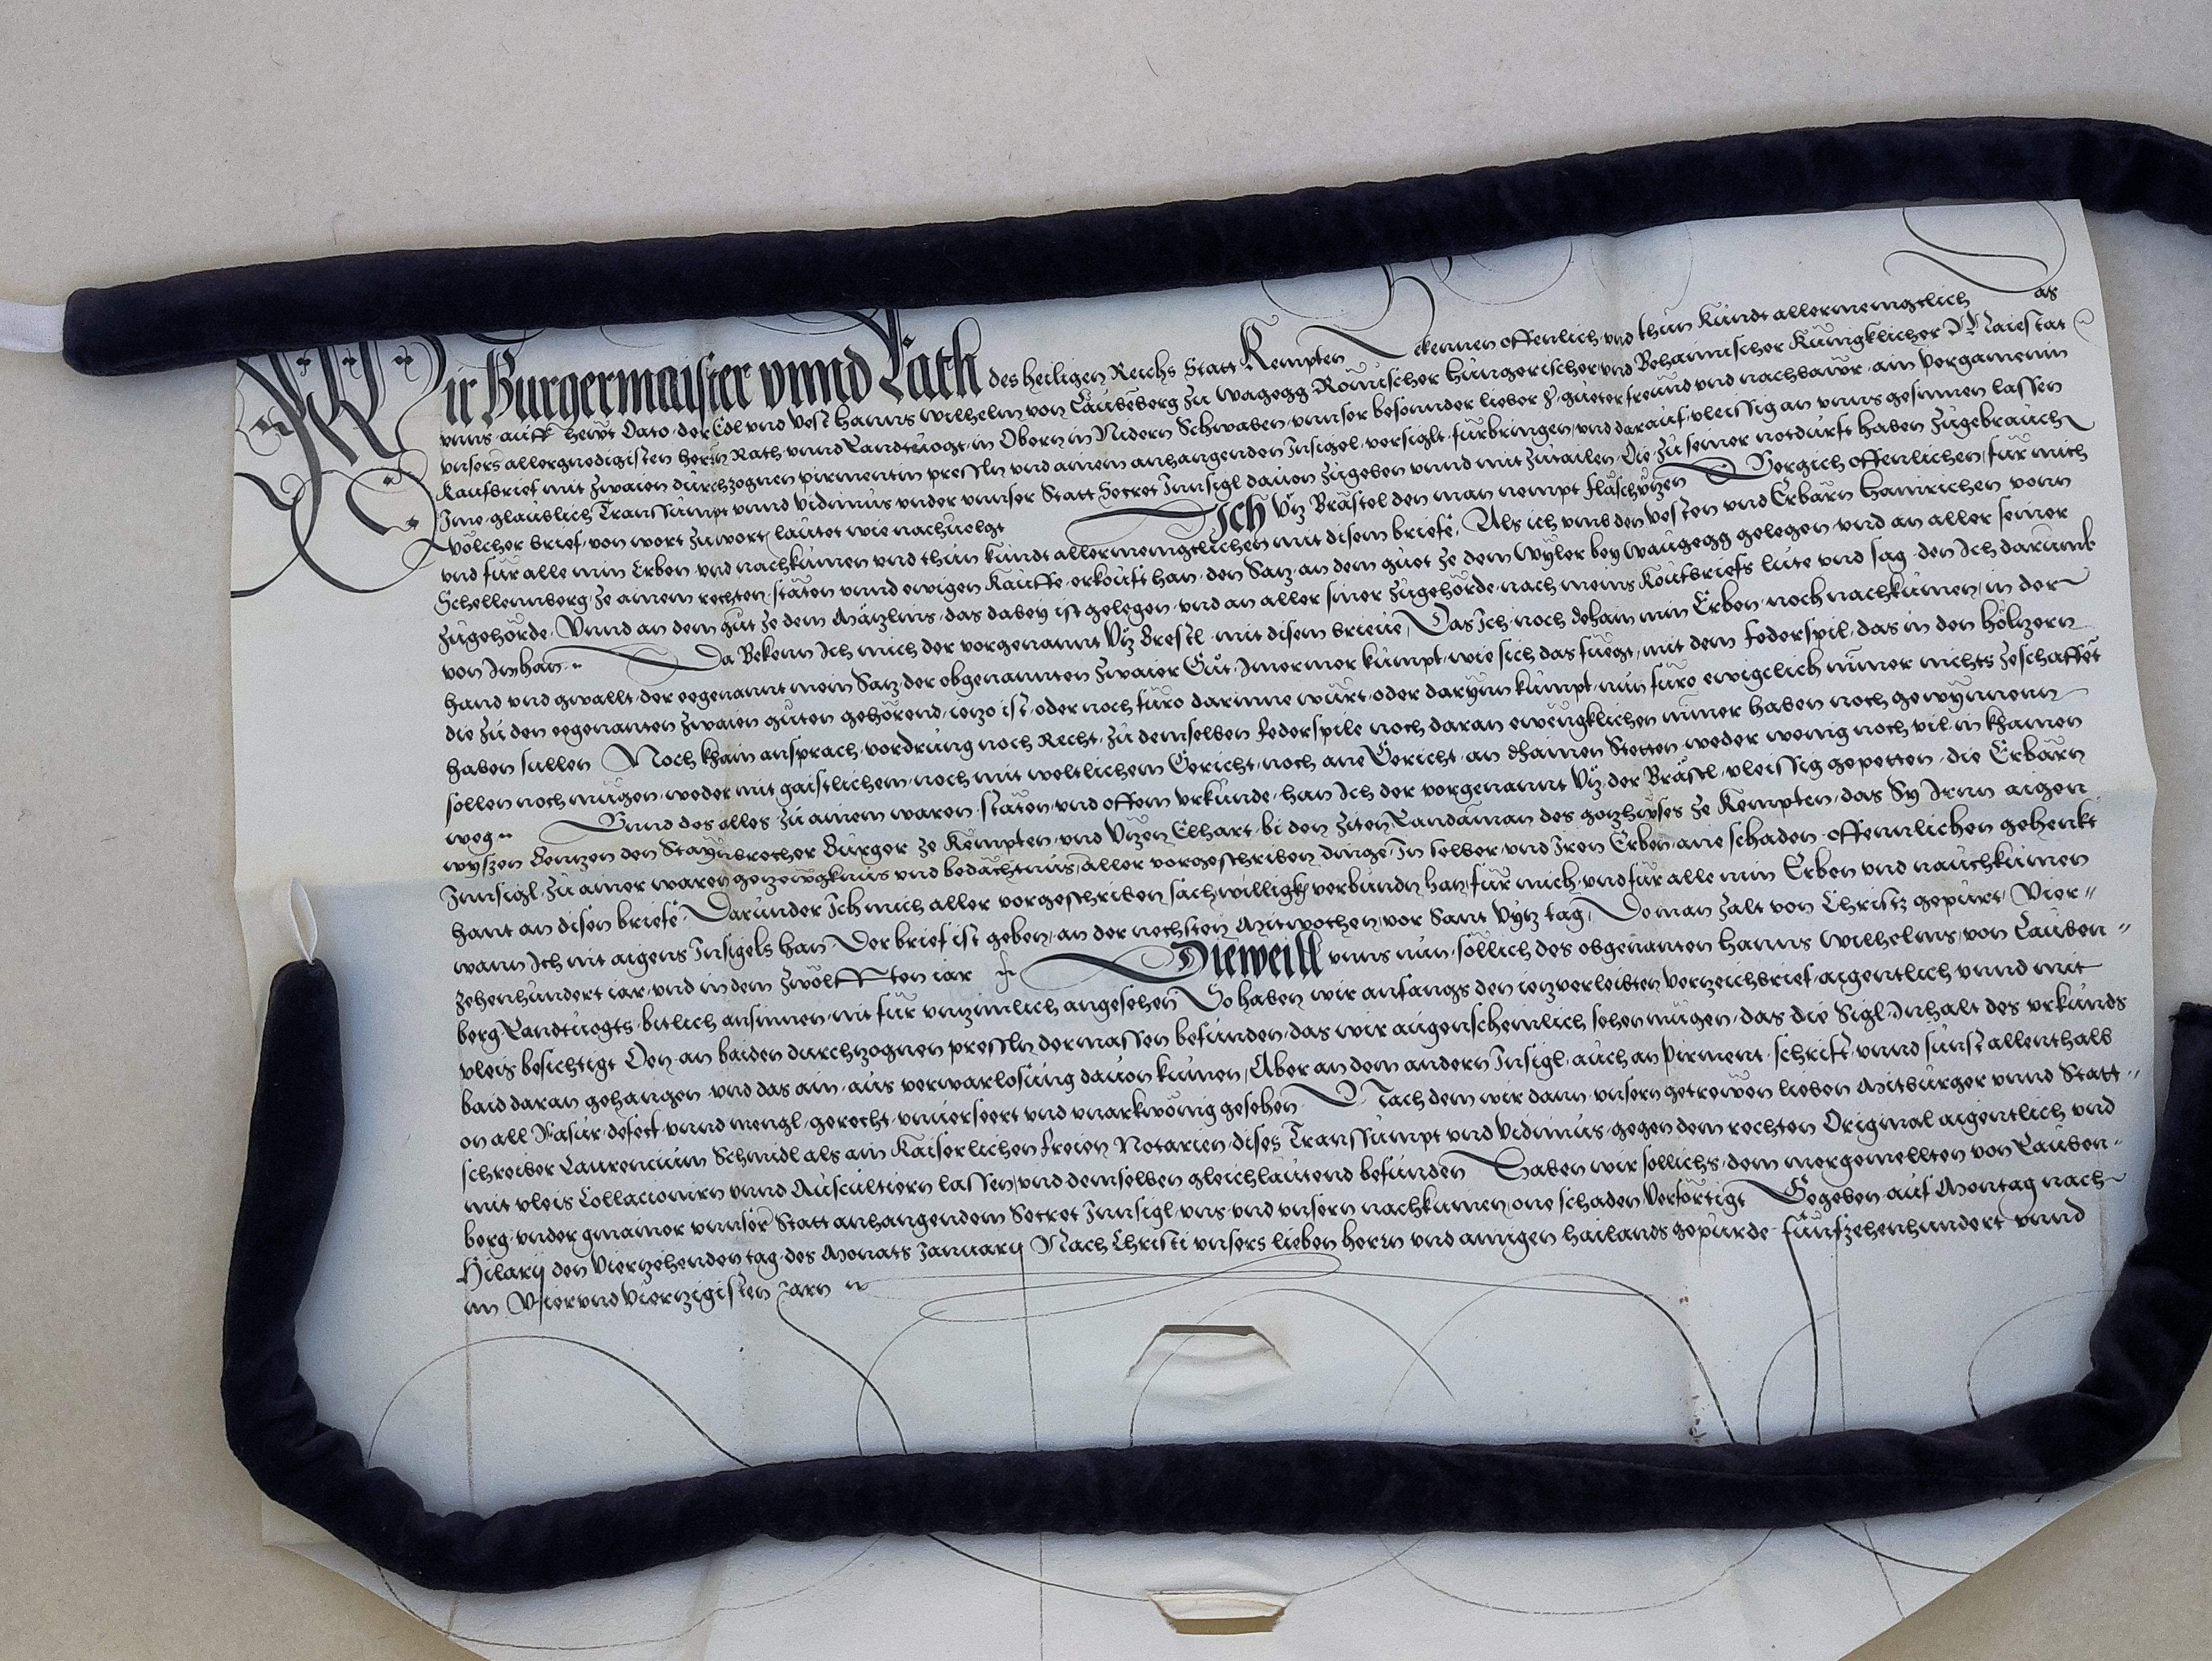 Wir Burgermaister vnnd Rath des heiligen Reichs Statt Kempten Bekennen offenlich vnd thun Kundt allermenigclich das
vnns auff heut Dato der Edl vnd Vest Hanns Wilhelm von Laubeberg zu Wagegg Römischer Hungerischer vnd Behaimischer Küngklicher Maiestat
vnsers allergnedigisten herrn Rath vnnd Landtuogt in Obern in Nidern Schwaben vnnser besonnder lieber h. gueter freund vnd nachbawr ain Pergamenin
Kaufbrief mit zwaien durchzognen pirmentin presseln vnd ainem anhangenden Insigel versiglt fürbringen vnd darauf vleissig an vnns gesinnen lassen
Ime glaublich Transsumpt vnnd Vidimus vnder vnnser Statt Secret Innsigl dauon zugeben vnnd mit zutailen Die zu seiner notdurft haben zugebrauch
Wölcher brief von wort zu wort lautet wie nachuolgt Ich Vtz Brästel den man nempt fläschutzen Vergich offenlichen für mich
vnd für alle min Erben vnd nachkumen vnd thun kundt allermengclichen mit disem briefe. Als ich vmb den vesten vnd Erbarn hainrichen vonn
Schellennberg ze ainem rechten stäten vnnd ewigen Kauffe erkouft han den Satz an dem guet ze dem Wyler bey Waugegg gelegen vnd an aller seiner
zugehörde Vnnd an dem gut ze dem Mätzlins das dabey ist gelegen vnd an aller siner zugehörde nach meins Koufbriefs lute vnd sag den Ich darumb
von Im han Da Bekenn Ich mich der vorgenannt Vtz Brestl mit disem brieue Das Ich noch dehain min Erben noch nachkumen in der
hand vnd gwallt der eegenannt mein Satz der obgenannten zwaier Gut Immermer kumpt wie sich das fuegt mit dem federspil das in den höltzern
die zu den eegenanten zwaien guten gehörend ietzo ist oder noch furo darinne wurt oder darynn kumpt nun furo ewigclich nimer nichts zeschaffet
haben sullen Noch khain ansprach vordrung noch Recht zu demselben federspile noch daran ewengklichen nimer haben noch gewynnenn
sollen noch mugen weder mit gaistlichem noch mit weltlichem Gericht noch ane Gericht an dhainen Stetten weder wenig noch vil in khainen
weg Vnnd des alles zu ainem waren stäten vnd offem vrkunde han Ich der vorgenannt Vtz der Brästl vleissig gepetten die Erbarn
wyszen Bentzen den Staynbrecher Burger ze Kempten vnd Vtzen Ekhart bi den ziten Landaman des gotzhuses ze Kempten das Sy Irnn aigen
Innsigl zu ainer waren getzewgknus vnd bedächtnus aller vorgeschriben dinge In selber vnd Iren Erben ane schaden offennlichen gehenkt
hant an disen briefe Darunder Ich mich aller vorgeschriben sach willigkh verbunden han für mich vnd für alle min Erben vnd nauchkumen
wann Ich nit aigens Insigels han Der brief ist geben an der nechsten Mitwochen vor Sant Vytz tag Do man zalt von Christz gepurt Vier"
zehenhundert iar vnd in dem zwölfften iar Dieweill vnns nun söllich des obgenanten Hanns Wilhelms von Lauben"
berg Landtuogts bitlich ansinnen nit für vnzimlich angesehen So haben wir anfangs den ietzverleibten Vertzeichbrief aigentlich vnnd mit
vleis besichtigt Den an baiden durchtzognen presseln dermassen befunden das wir augenscheinlich sehen mügen das die Sigl Inhalt des vrkunds
baid daran gehangen vnd das ain aus verwarlosung dauon kumen Aber an dem andern Insigl auch an Pirment schrift vnnd sunst allenthalb
on all Rasur defect vnnd mengl gerecht vnuerseert vnd vnarkwönig gesehen Nach dem wir dann vnsern getrewen lieben Mitburger vnnd Statt"
schreiber Laurencium Schmidl als ain Kaiserlichen freien Notarien dises Transsumpt vnd Vidimus gegen dem rechten Original aigentlich vnd
mit vleis Collacionirn vnnd Auscultiern lassen vnd demselben gleichlautend befunden Haben wir sollichs dem mergemellten von Lauben"
berg vnder gmainer vnnser Statt anhangendem Secret Innsigl vns vnd vnsern nachkumen one schaden Verfertigt Gegeben auf Montag nach
Hilarij den Viertzehenden tag des Monats January Nach Christi vnsers lieben herrn vnd ainigen hailands gepurde funfzehenhundert vnnd
im Vierundviertzigisten Jarn